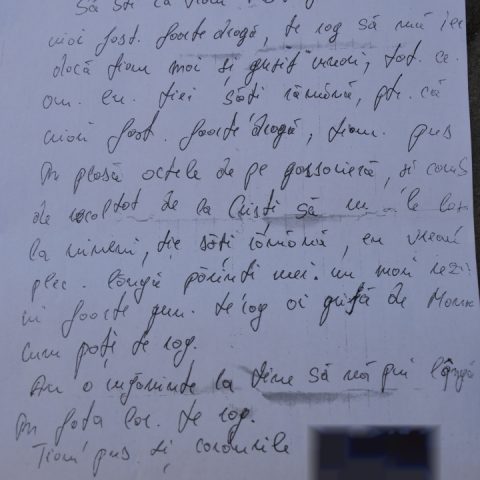 Să ști că
miai fost. foarte dragă, te rog să mă ier
dacă tiam mai și gresit vreun, tot ce
am. eu. tiei săti rămână, ptr. că
miai fost. foarte dragă, tiam. pus
În plasă actele de pe garsonieră, și
de de la Cristi să le
la nimeni, ție săti rămână, eu vreau
plec. lângă părinti mei. nu mai rezi
mi foarte greu. te rog ai grijă de
cum poți te rog.
Am o rugăminte la tine să mă pui lângă
În fața lor. te rog.
Tiam pus și cardurile